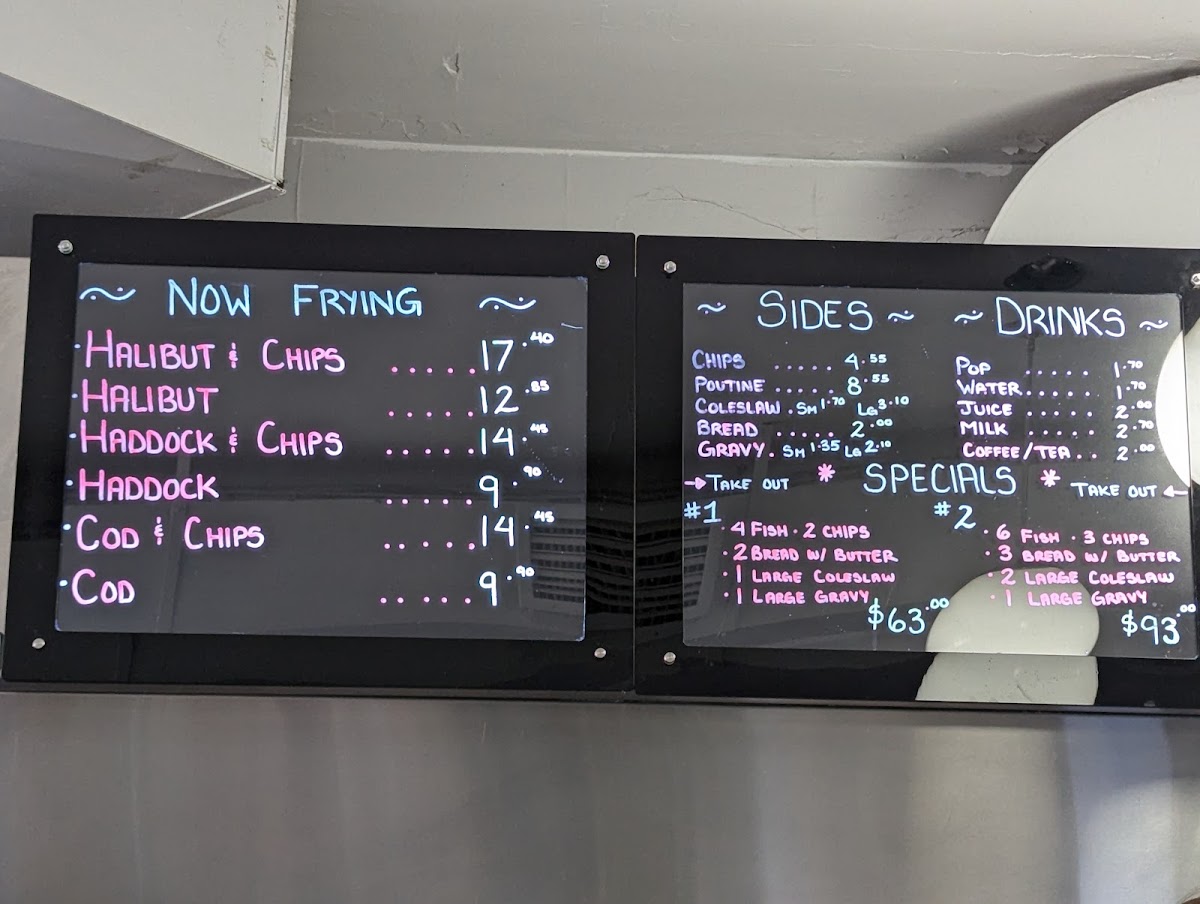 ~ NOW FRYING ~
· HALIBUT & CHIPS ..... 17.40
· HALIBUT ..... 12.85
· HADDOCK & CHIPS ..... 14.45
· HADDOCK ..... 9.90
· COD & CHIPS ..... 14.45
· COD ..... 9.90
~ SIDES ~
CHIPS ..... 4.55
POUTINE ..... 8.55
COLESLAW . SM 1.70 LG 3.10
BREAD ..... 2.00
GRAVY . SM 1.35 LG 2.10
~ DRINKS ~
POP ..... 1.70
WATER ..... 1.70
JUICE ..... 2.00
MILK ..... 2.70
COFFEE/TEA .. 2.00
→ TAKE OUT * SPECIALS * TAKE OUT ←
#1
4 FISH · 2 CHIPS
· 2 BREAD W/ BUTTER
· 1 LARGE COLESLAW
· 1 LARGE GRAVY
$63.00
#2
· 6 FISH · 3 CHIPS
· 3 BREAD W/ BUTTER
· 2 LARGE COLESLAW
· 1 LARGE GRAVY
$93.00